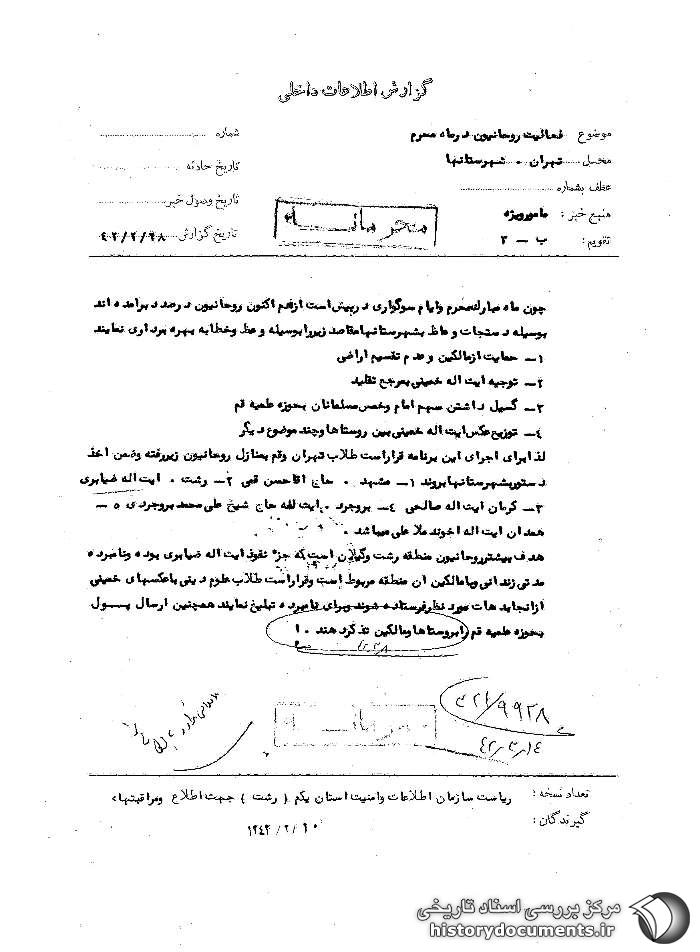 گزارش اطلاعات داخلی
موضوع فعالیت روحانیون در ماه محرم
شماره
محل تهران - شهرستانها
تاریخ حادثه
عطف بشماره
تاریخ وصول خبر
منبع خبر: مامور ویژه
محرمانه
تقویم: ب - ۳
تاریخ گزارش ۴۲/۲/۲۸
چون ماه مبارک محرم و ایام سوگواری در پیش است از هم اکنون روحانیون در صدد برآمده اند
بوسیله دستجات و عاظ بشهرستانها مقاصد زیر را بوسیله وعظ و خطابه بهره برداری نمایند
۱- حمایت از مالکین و عدم تقسیم اراضی
۲- توجیه ایت اله خمینی بمرجع تقلید
۳- گسیل داشتن سهم امام و خمس مسلمانان بحوزه علمیه قم
۴- توزیع عکس ایت اله خمینی بین روستاها و چند موضوع دیگر
لذا برای اجرای این برنامه قرار است طلاب تهران وقم بمنازل روحانیون زیر رفته وضمن اخذ
دستور بشهرستانها بروند ۱- مشهد . حاج اقا حسن قمی ۲- رشت . ایت اله ضیابری
۳- کرمان ایت اله صالحی ۴- بروجرد . ایت الله حاج شیخ علی محمد بروجردی ۵ -
همدان ایت اله اخوند ملا علی میباشد .
هدف بیشتر روحانیون منطقه رشت و گیلان است که جزء نفوذ ایت اله ضیابری بوده ونامبرده
مدتی زندانی وبا مالکین ان منطقه مربوط است وقرار است طلاب علوم دینی با عکسهای خمینی
از انجا بدهات مورد نظر فرستاده شوند وبرای نامبرده تبلیغ نمایند همچنین ارسال پسول
بحوزه علمیه قم را بروستاها ومالکین تذکر دهند . ۱
۴۲/۲/۲۸
محرمانه
۳۲۱/۹۹۲۸
۴۲/۳/۱۴
تعداد نسخه: ریاست سازمان اطلاعات وامنیت استان یکم ( رشت ) جهت اطلاع ومراقبتهای
گیرندگان:
۱۳۴۲/۲/۳۰
مرکز بررسی اسناد تاریخی
historydocuments.ir